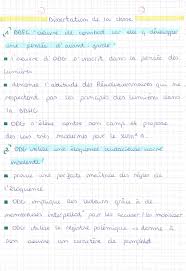 Dissertation de la classe
1° DDFC œuvre de combat car elle y développe
une pensée d'avant garde :
■ l'œuvre d'ODG s'inscrit dans la pensée des
Lumières
■ dénonce l'attitude des Révolutionnaires qui ne
respectent pas les principes des lumières dans
la BBDHC
■ ODG s'élève contre son camp et propose
des lois très modernes pour le
2° ODG utilise une éloquence audacieuse voire
violente !
■ prouve une parfaite maîtrise des règles de
l'éloquence
■ ODG implique les lecteurs grâce à de
nombreuses interpellat° pour les accuser / les mobiliser
■ ODG utilise le registre polémique → donne à
son œuvre un caractère de pamphlet